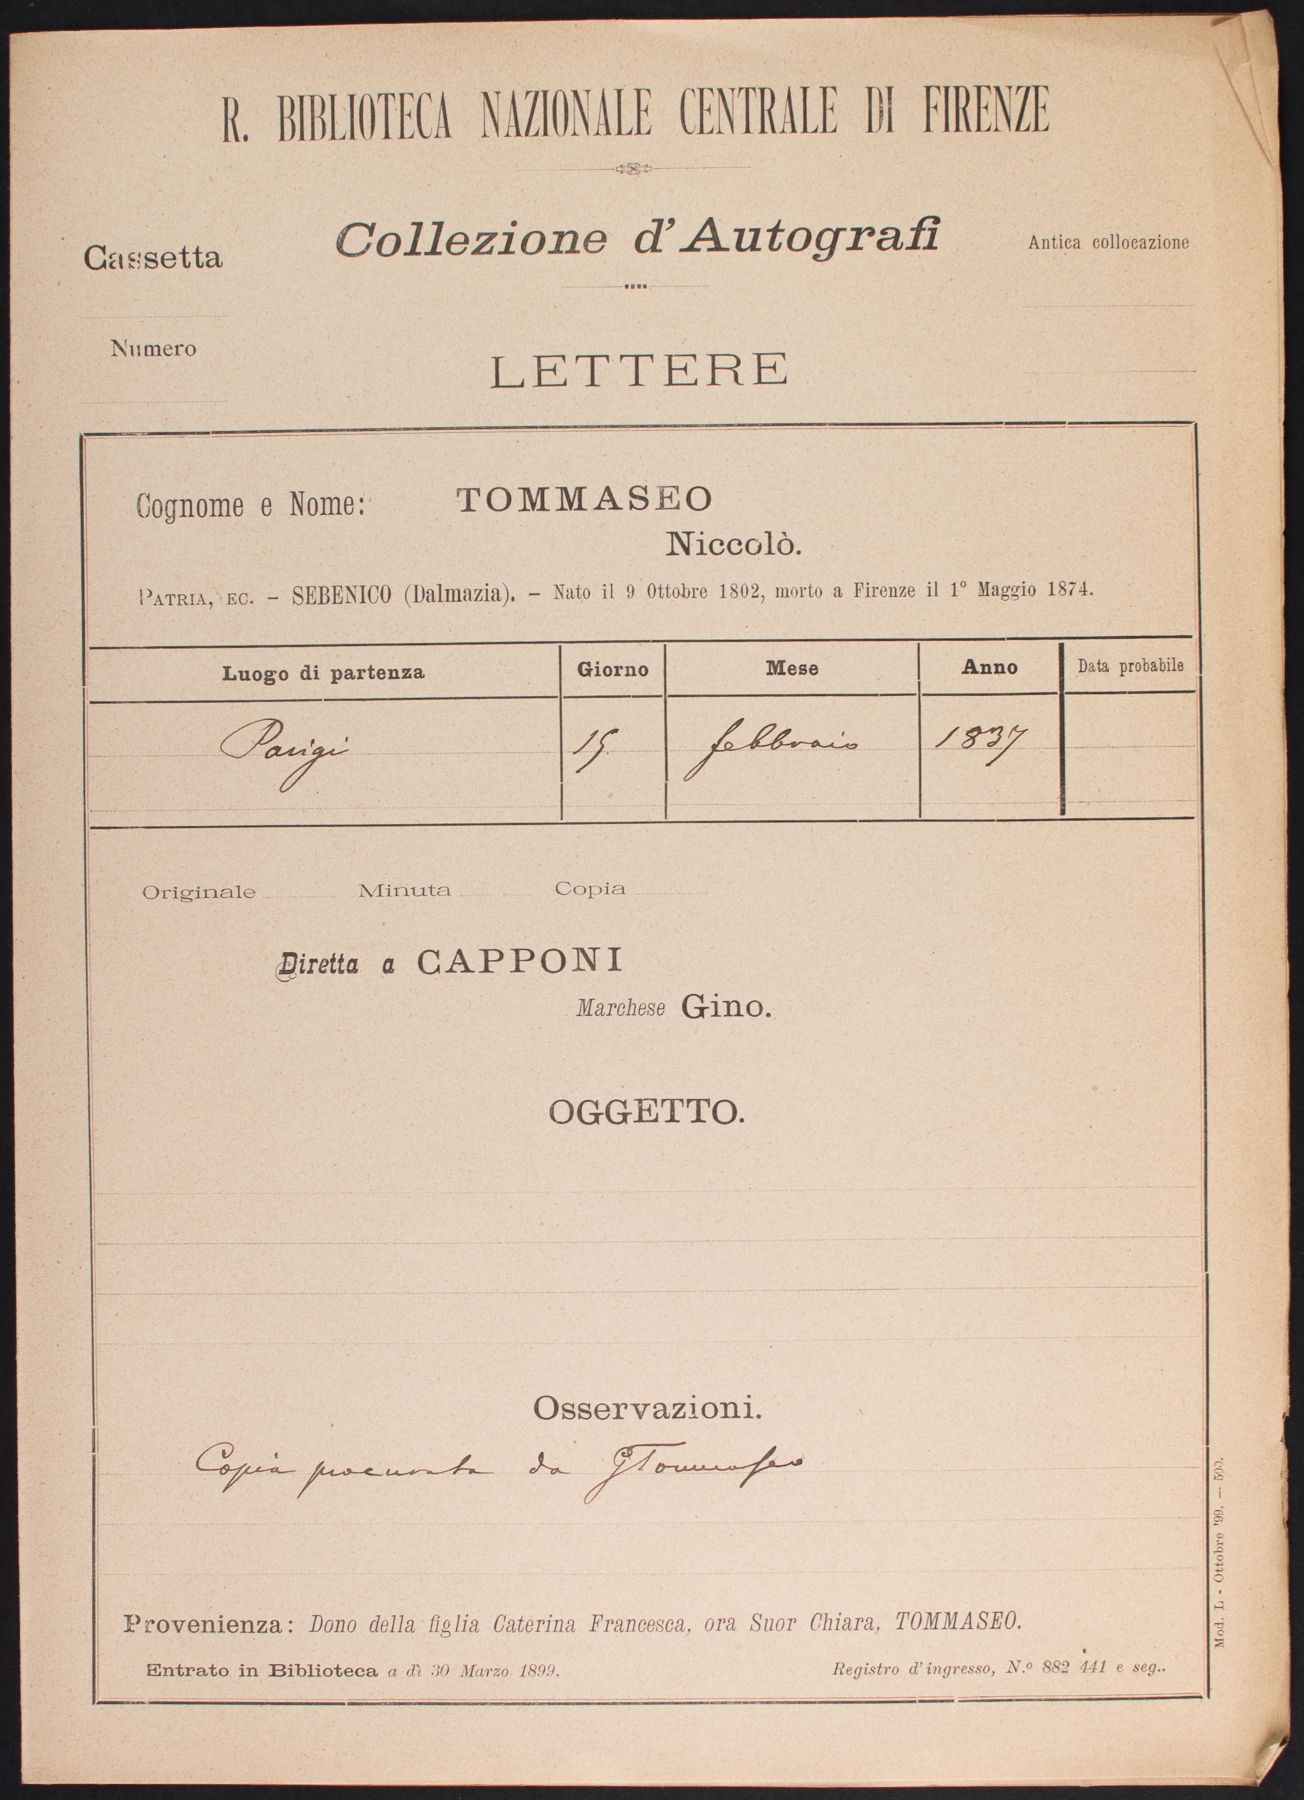 R. BIBLIOTECA NAZIONALE CENTRALE DI FIRENZE
Collezione d'Autografi
Cassetta
Antica collocazione
Numero
LETTERE
Cognome e Nome: TOMMASEO
Niccolò.
PATRIA, EC. – SEBENICO (Dalmazia). – Nato il 9 Ottobre 1802, morto a Firenze il 1° Maggio 1874.
Luogo di partenza Giorno Mese Anno Data probabile
Parigi 15 febbraio 1837
Originale Minuta Copia
Diretta a CAPPONI
Marchese Gino.
OGGETTO.
Osservazioni.
Copia procurata da GTommaseo
Provenienza: Dono della figlia Caterina Francesca, ora Suor Chiara, TOMMASEO.
Entrato in Biblioteca a dì 30 Marzo 1899. Registro d'ingresso, N.º 882 441 e seg..
Mod. L - Ottobre '99. — 500.